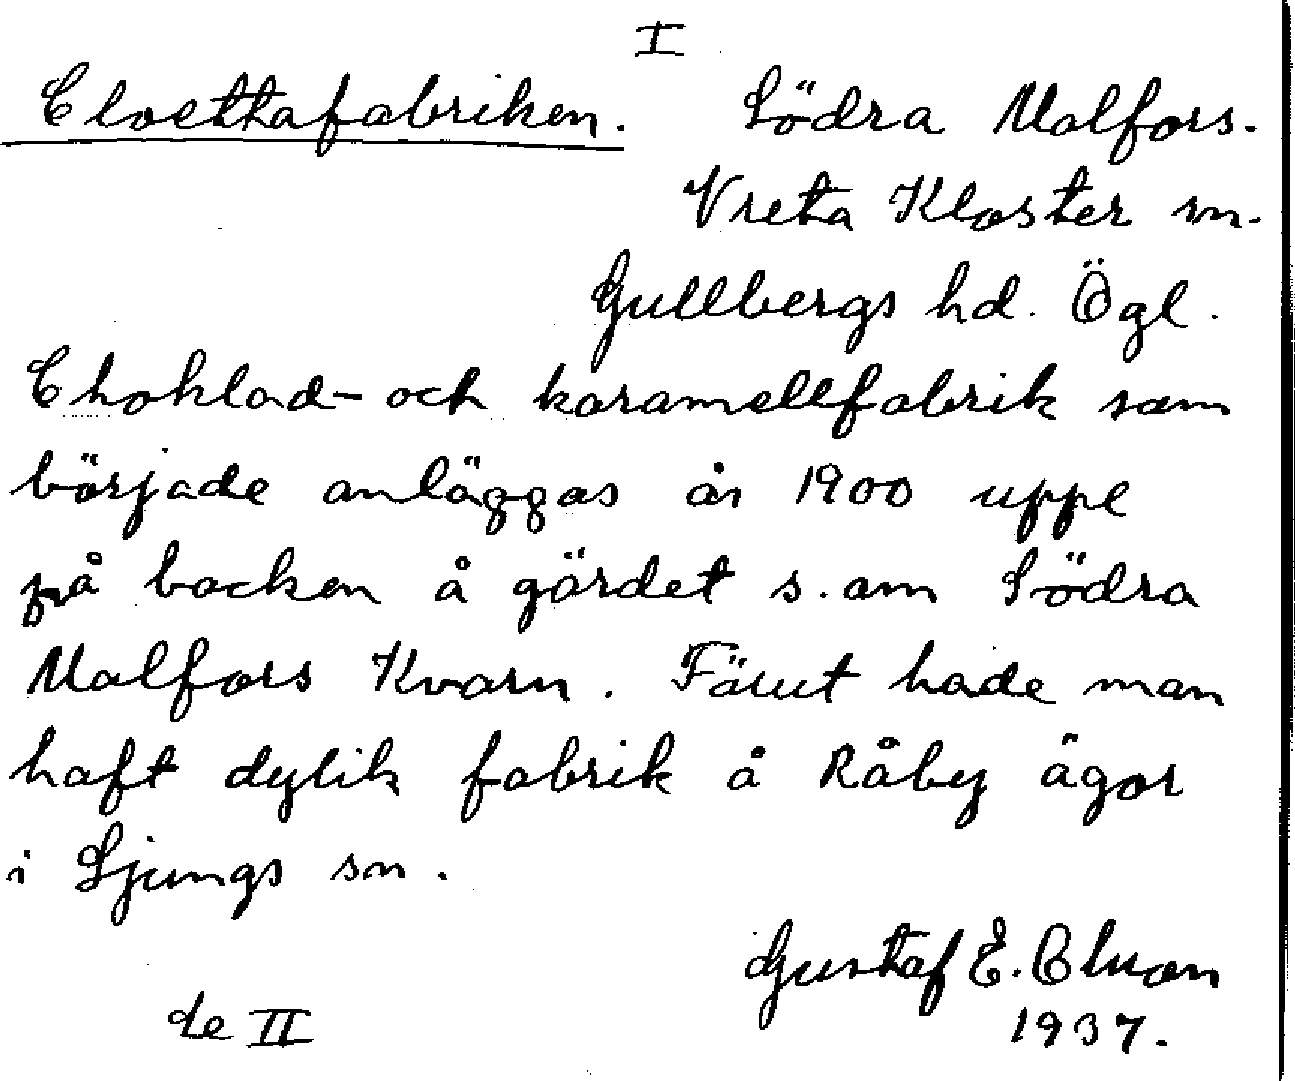 I
Cloettafabriken. Södra Malfors.
Vreta Kloster sn.
Gullbergs hd. Ögl.
Choklad- och karamellfabrik som
började anläggas år 1900 uppe
på backen å gärdet s. om Södra
Malfors Kvarn. Förut hade man
haft dylik fabrik å Råby ägor
i Ljungs sn.
Gustaf E.
Se II 1937.